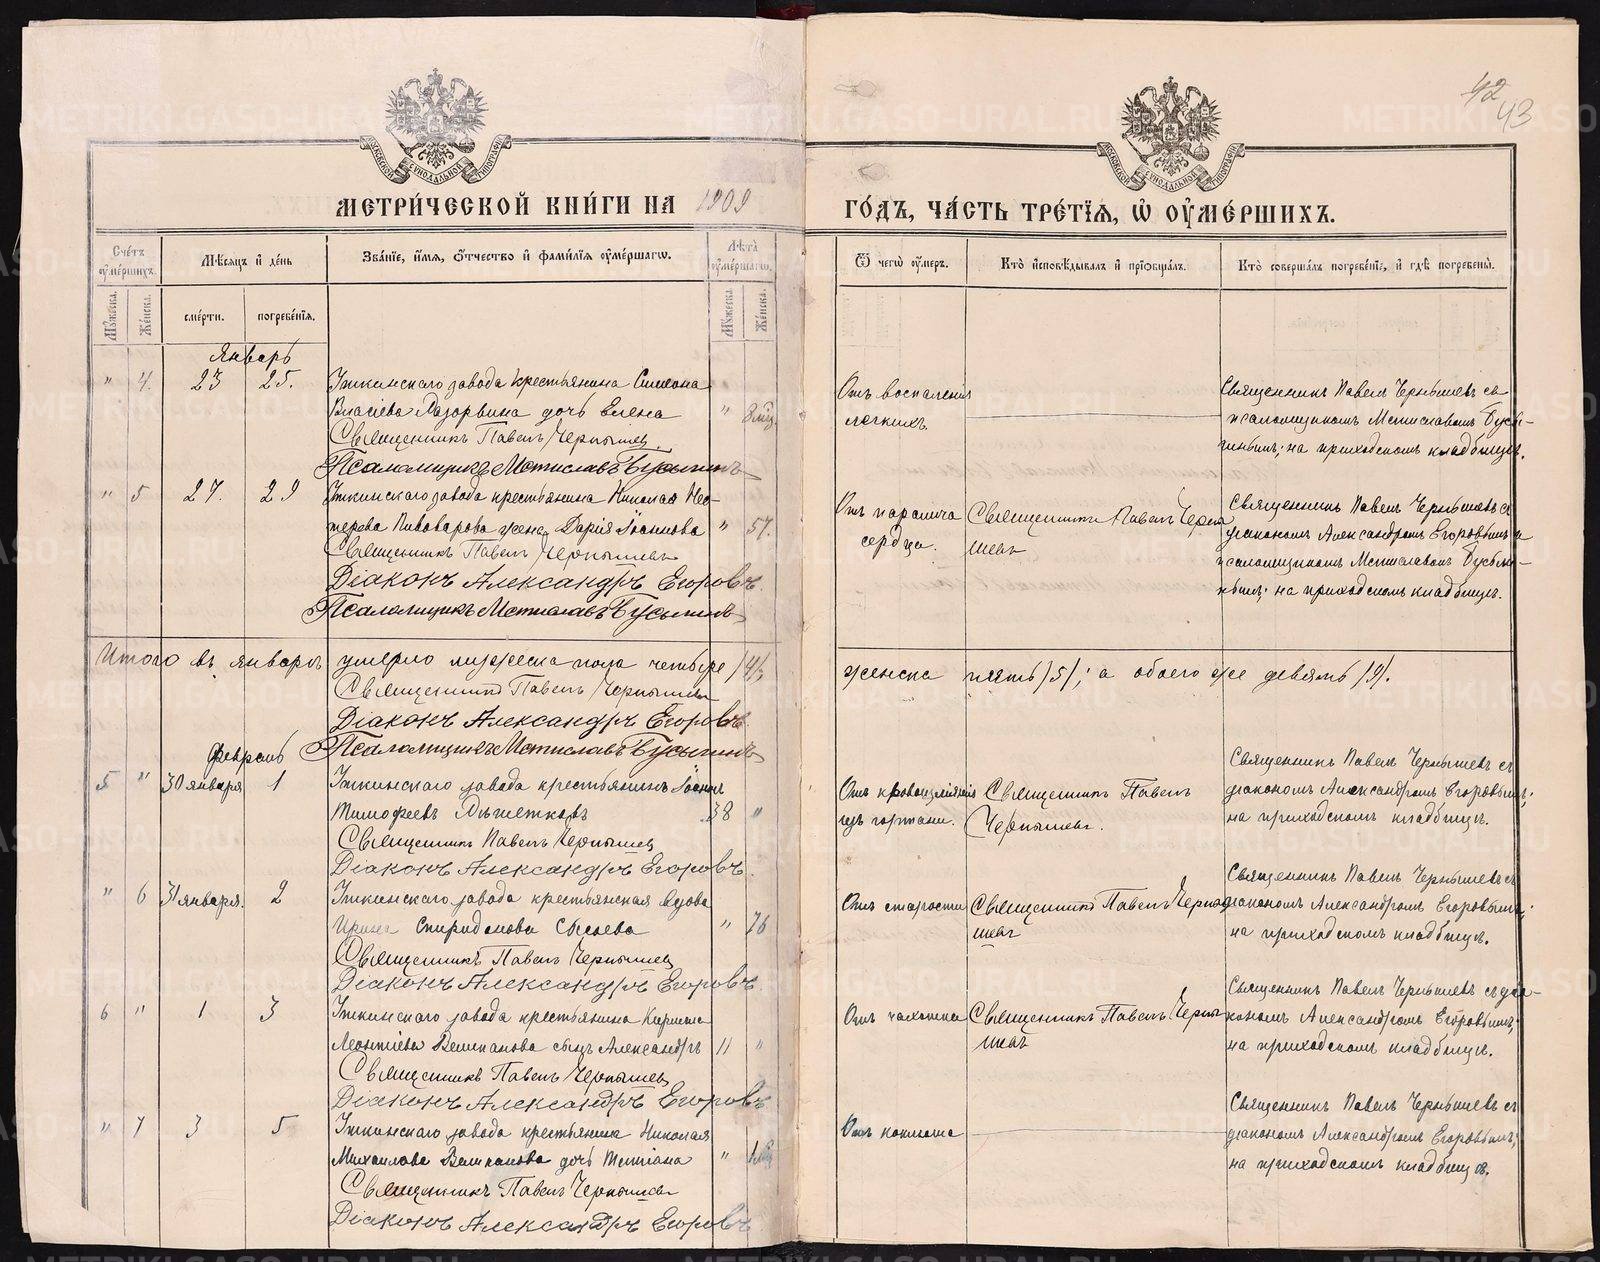 42
43
МОСКОВСКОЙ СѴНОДАЛЬНОЙ ТИПОГРАФІИ
МОСКОВСКОЙ СѴНОДАЛЬНОЙ ТИПОГРАФІИ
МЕТРИ́ЧЕСКОЙ КНИ́ГИ НА 1909
ГО́ДЪ, ЧА́СТЬ ТРЕ́ТІѦ, Ѡ҆ ОУ҆МЕ́РШИХЪ.
Сче́тъ оу҆ме́ршихъ.
Мѣ́сяцъ и҆ де́нь
Зва́нїе, и҆́мя, ѻ҆́тчество и҆ фами́лїя оу҆ме́ршагѡ.
Лѣ́та оу҆ме́ршагѡ.
Ѿ чегѡ̀ оу҆́меръ.
Кто̀ и҆сповѣ́дывалъ и҆ прїобща́лъ.
Кто̀ соверша́лъ погребе́нїе, и҆ гдѣ̀ погребены̀.
Мꙋ́жеска.
Же́нска.
сме́рти.
погребе́нїя.
Мꙋ́жеска.
Же́нска.
Январь
" 4. 23 25. Уткинскаго завода крестьянина Симеона
Власіева дочь Елена " 8 мѣс.
Священникъ Павелъ Чернышев
Псаломщикъ Мстиславъ Бусыгинъ
Отъ воспаленія
легкихъ.
Священникъ Павелъ Чернышевъ съ
псаломщикомъ Мстиславомъ Бусы-
гинымъ; на приходскомъ кладбищѣ.
" 5 27. 29 Уткинскаго завода крестьянина Николая Нес-
терова Пивоварова жена Дарія Іоаннова " 57.
Священникъ Павелъ Чернышевъ
Діаконъ Александръ Егоровъ.
Псаломщикъ Мстиславъ Бусыгинъ
Отъ паралича
сердца.
Священникъ Павелъ Черны
шевъ
Священникъ Павелъ Чернышевъ съ
діакономъ Александромъ Егоровымъ и
псаломщикомъ Мстиславомъ Бусыги-
нымъ; на приходскомъ кладбищѣ.
Итого въ январѣ умерло мужеска пола четыре /4/,
женска пять /5/; а обоего же девять /9/.
Священникъ Павелъ Чернышевъ
Діаконъ Александръ Егоровъ
Псаломщикъ Мстиславъ Бусыгинъ
Февраль
5 " 30 января 1 Уткинскаго завода крестьянинъ Іоаннъ
Тимофеевъ 38 "
Священникъ Павелъ Чернышев
Діаконъ Александръ Егоровъ.
Отъ кровоизліянія
изъ гортани.
Священникъ Павелъ
Чернышевъ.
Священникъ Павелъ Чернышевъ съ
діакономъ Александромъ Егоровымъ;
на приходскомъ кладбищѣ.
" 6 31 января. 2 Уткинскаго завода крестьянская вдова
Ирина Спиридонова Сысоева " 76
Священникъ Павелъ Чернышев
Діаконъ Александръ Егоровъ.
Отъ старости
Священникъ Павелъ Черны
шевъ
Священникъ Павелъ Чернышевъ съ
діакономъ Александромъ Егоровымъ;
на приходскомъ кладбищѣ.
6 " 1 3 Уткинскаго завода крестьянина Кирилла
Леонтіева Велиганова сынъ Александръ 11 "
Священникъ Павелъ Чернышев
Діаконъ Александръ Егоровъ
Отъ чахотки
Священникъ Павелъ Черны
шевъ
Священникъ Павелъ Чернышевъ съ діа-
кономъ Александромъ Егоровымъ;
на приходскомъ кладбищѣ.
" 7 3 5 Уткинскаго завода крестьянина Николая
Михаилова дочь Татіана "
Священникъ Павелъ Чернышевъ
Діаконъ Александръ Егоровъ
Отъ коклюша
Священникъ Павелъ Чернышевъ съ
діакономъ Александромъ Егоровымъ;
на приходскомъ кладбищѣ.
METRIKI.GASO-URAL.RU